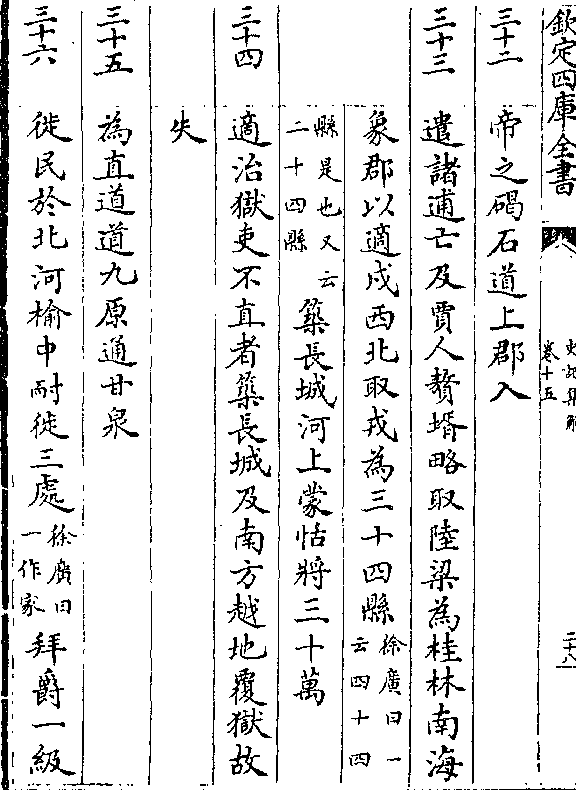 欽定四庫全書
史記集解
卷十五
二十八
三十二
帝之碣石道上郡入
三十三
遣諸逋亡及賈人贅壻略取陸梁為桂林南海
象郡以適戍西北取戎為三十四縣徐廣曰一
云四十四
縣是也又云
二十四縣築長城河上蒙恬將三十萬
三十四
適治獄吏不直者築長城及南方越地覆獄故
失
三十五
為直道道九原通甘泉
三十六
徙民於北河榆中耐徙三處徐廣曰
一作家拜爵一級